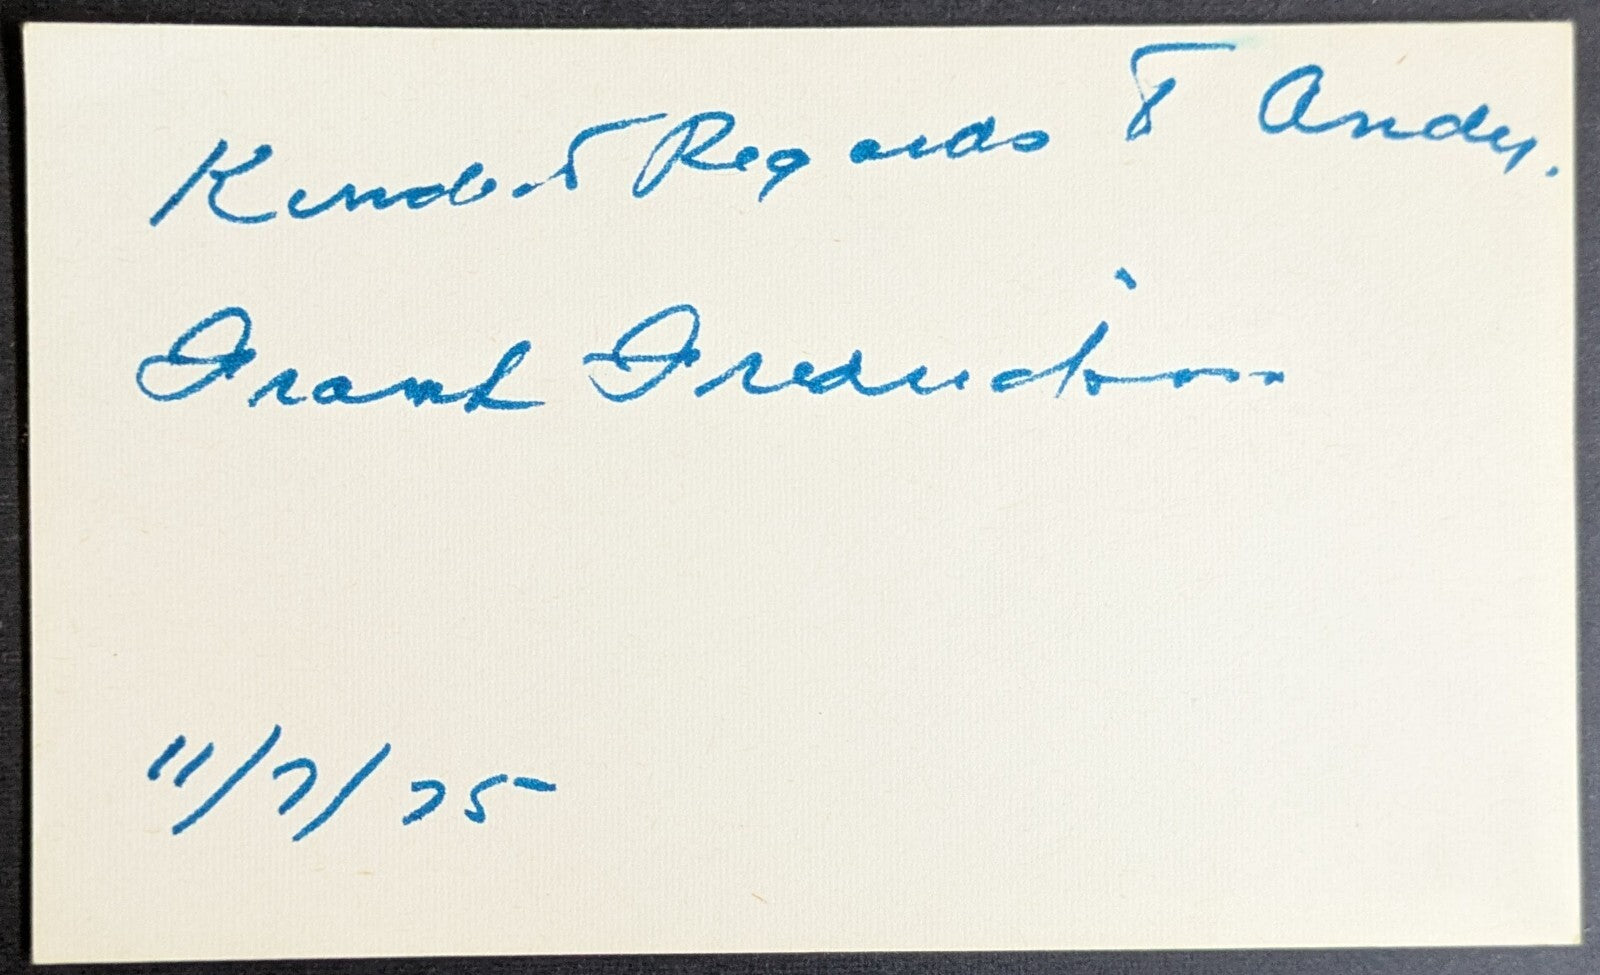 Kindest Regards to Andy.
Frank Fredrickson
11/7/75